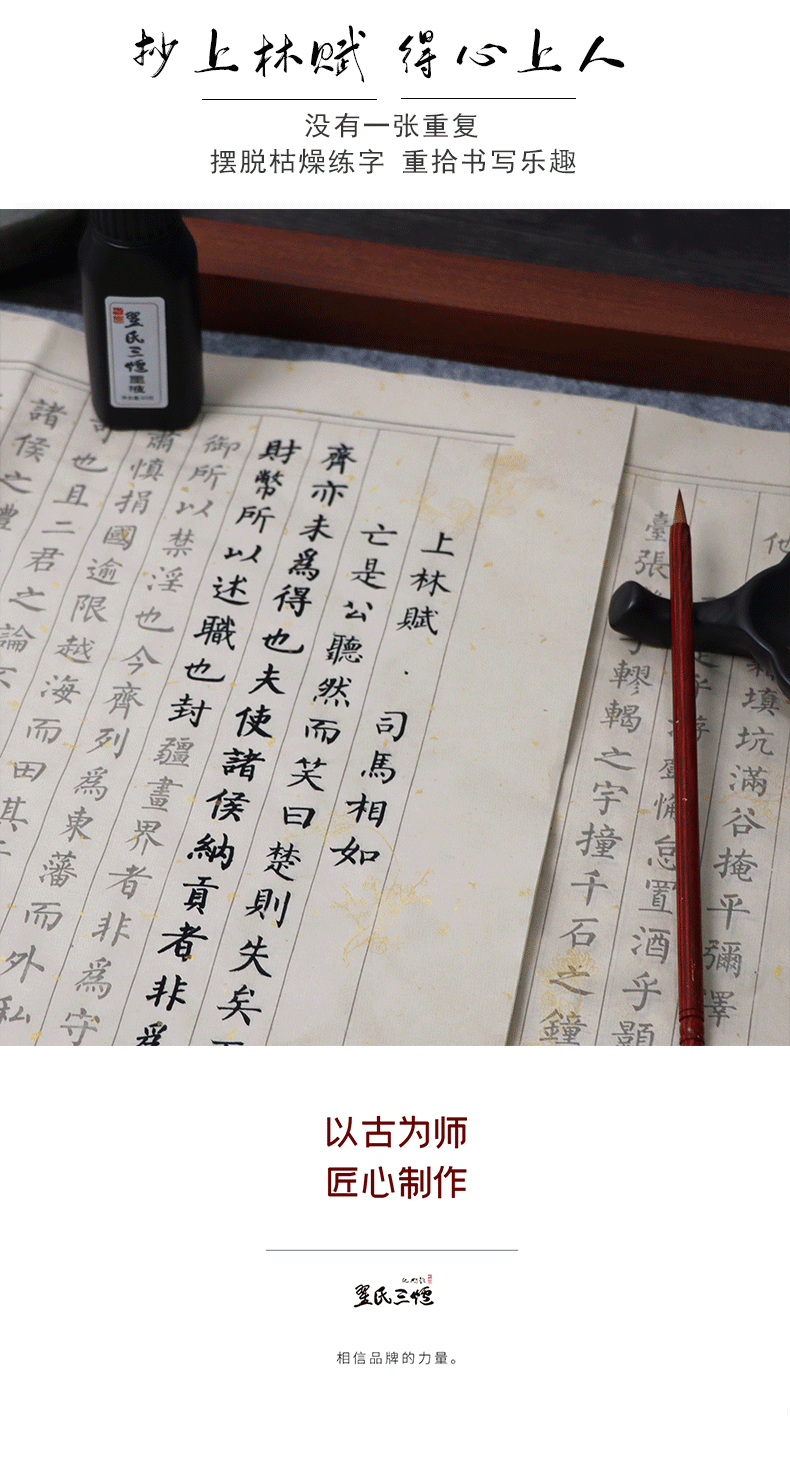 抄上林赋 得心上人
没有一张重复
摆脱枯燥练字 重拾书写乐趣
墨液
上林赋·司馬相如
亡是公聽然而笑曰楚則失矣
齊亦未爲得也夫使諸侯納貢者非爲
財幣所以述職也封疆畫界者非爲守
御所以禁淫也今齊列爲東藩而外私
肅慎捐國逾限越海而田其
可也且二君之論
諸侯之禮
填坑滿谷掩平彌澤
臺張
轇輵之宇撞千石之鐘
怠置酒乎顥
以古为师
匠心制作
相信品牌的力量。